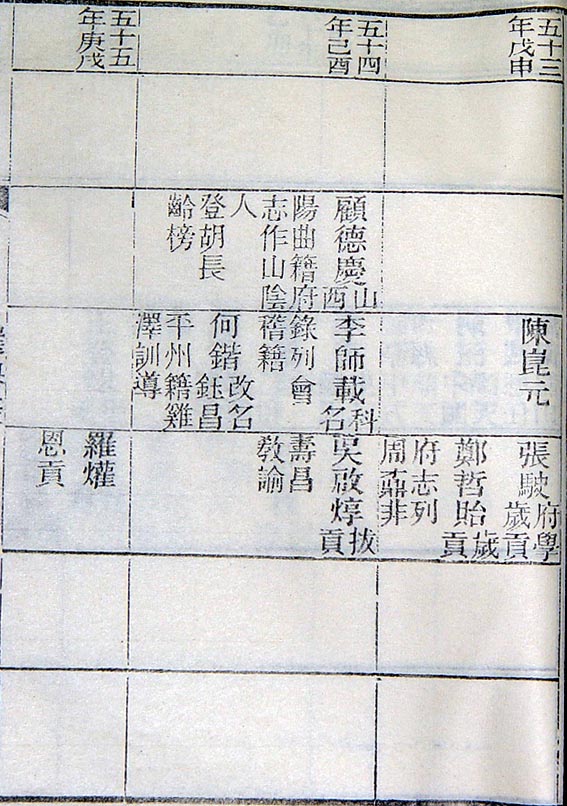 五十三
年戊申
陳崑元
張駛府學
歲貢
鄭哲貽歲
貢
府志列
周鼐非
五十四
年己酉
顧德慶山
西
陽曲籍府
志作山陰
人
登胡長
齡榜
李師載科
名
錄列會
稽籍
何鍇改名
鈺昌
平州籍雞
澤訓導
吳啟焞拔
貢
壽昌
教諭
五十五
年庚戌
羅爟
恩貢